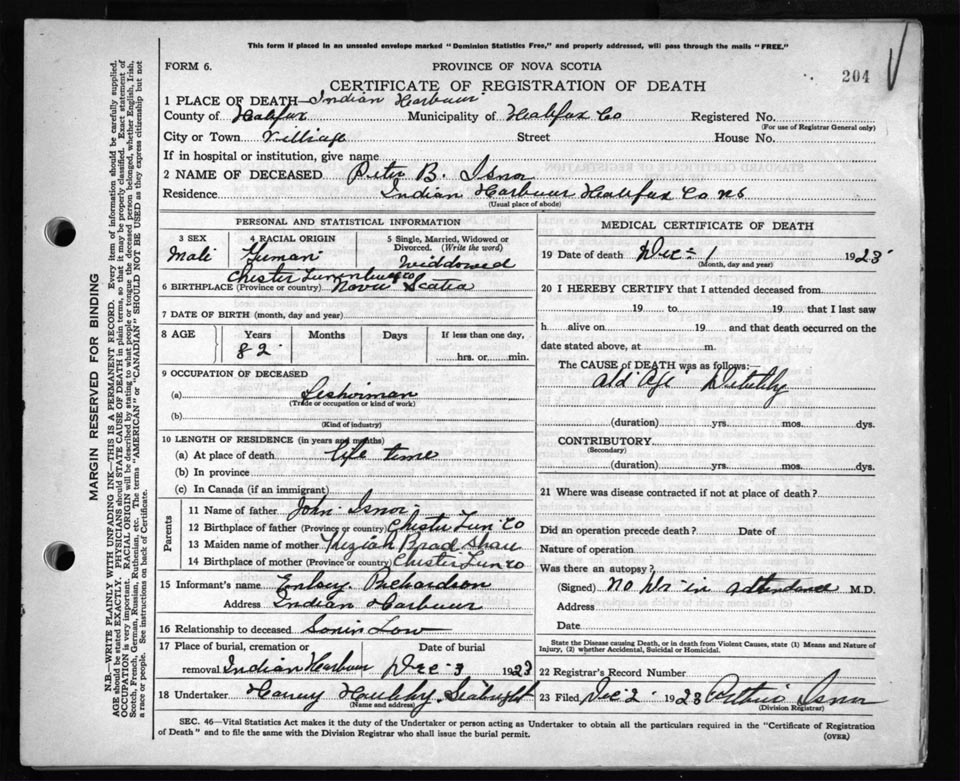 This form if placed in an unsealed envelope marked "Dominion Statistics Free," and properly addressed, will pass through the mails "FREE."
FORM 6. PROVINCE OF NOVA SCOTIA
204
CERTIFICATE OF REGISTRATION OF DEATH
1 PLACE OF DEATH—Indian Harbour
County of Halifax Municipality of Halifax Co Registered No.
(For use of Registrar General only)
City or Town Village Street House No.
If in hospital or institution, give name
2 NAME OF DECEASED Peter B. Isnor
Residence Indian Harbour Halifax Co NS
(Usual place of abode)
PERSONAL AND STATISTICAL INFORMATION
3 SEX 4 RACIAL ORIGIN 5 Single, Married, Widowed or Divorced. (Write the word)
Male German Widdowed
Chester Lunenburg co
6 BIRTHPLACE (Province or country) Nova Scotia
7 DATE OF BIRTH (month, day and year)
8 AGE Years Months Days If less than one day,
82 hrs. or min.
9 OCCUPATION OF DECEASED
(a) Fisherman
(Trade or occupation or kind of work)
(b)
(Kind of industry)
10 LENGTH OF RESIDENCE (in years and months)
(a) At place of death life time
(b) In province
(c) In Canada (if an immigrant)
Parents
11 Name of father John Isnor
12 Birthplace of father (Province or country) Chester Lun Co
13 Maiden name of mother Keziah
14 Birthplace of mother (Province or country) Chester Lun co
15 Informant's name Richardson
Address Indian Harbour
16 Relationship to deceased Son in Low
17 Place of burial, cremation or removal Date of burial
Indian Harbour Dec 3 1923
18 Undertaker Seabright
(Name and address)
MEDICAL CERTIFICATE OF DEATH
19 Date of death Dec 1 1923
(Month, day and year)
20 I HEREBY CERTIFY that I attended deceased from
19 to 19 that I last saw
h alive on 19 and that death occurred on
date stated above, at m.
The CAUSE of DEATH was as follows:—
old age Debility
(duration) yrs. mos. dys.
CONTRIBUTORY
(Secondary)
(duration) yrs. mos. dys.
21 Where was disease contracted if not at place of death?
Did an operation precede death? Date of
Nature of operation
Was there an autopsy?
(Signed) No Dr in attendance M.D.
Address
Date
State the Disease causing Death, or in death from Violent Causes, state (1) Means and Nature of Injury, (2) whether Accidental, Suicidal or Homicidal.
22 Registrar's Record Number
23 Filed Dec 2 1923 Isnor
(Division Registrar)
SEC. 46—Vital Statistics Act makes it the duty of the Undertaker or person acting as Undertaker to obtain all the particulars required in the "Certificate of Registration
of Death" and to file the same with the Division Registrar who shall issue the burial permit.
(OVER)
MARGIN RESERVED FOR BINDING
N.B.—WRITE PLAINLY WITH UNFADING INK—THIS IS A PERMANENT RECORD. Every item of information should be carefully supplied.
AGE should be stated EXACTLY. PHYSICIANS should STATE CAUSE OF DEATH in plain terms, so that it may be properly classified. Exact statement of
OCCUPATION is very important. RACIAL ORIGIN will be described by stating to what people or tongue the deceased person belonged, whether English, Irish,
Scotch, French, German, Russian, Ruthenian, etc. The terms "AMERICAN" or "CANADIAN" SHOULD NOT BE USED as they express citizenship but not
a race or people. See instructions on back of Certificate.